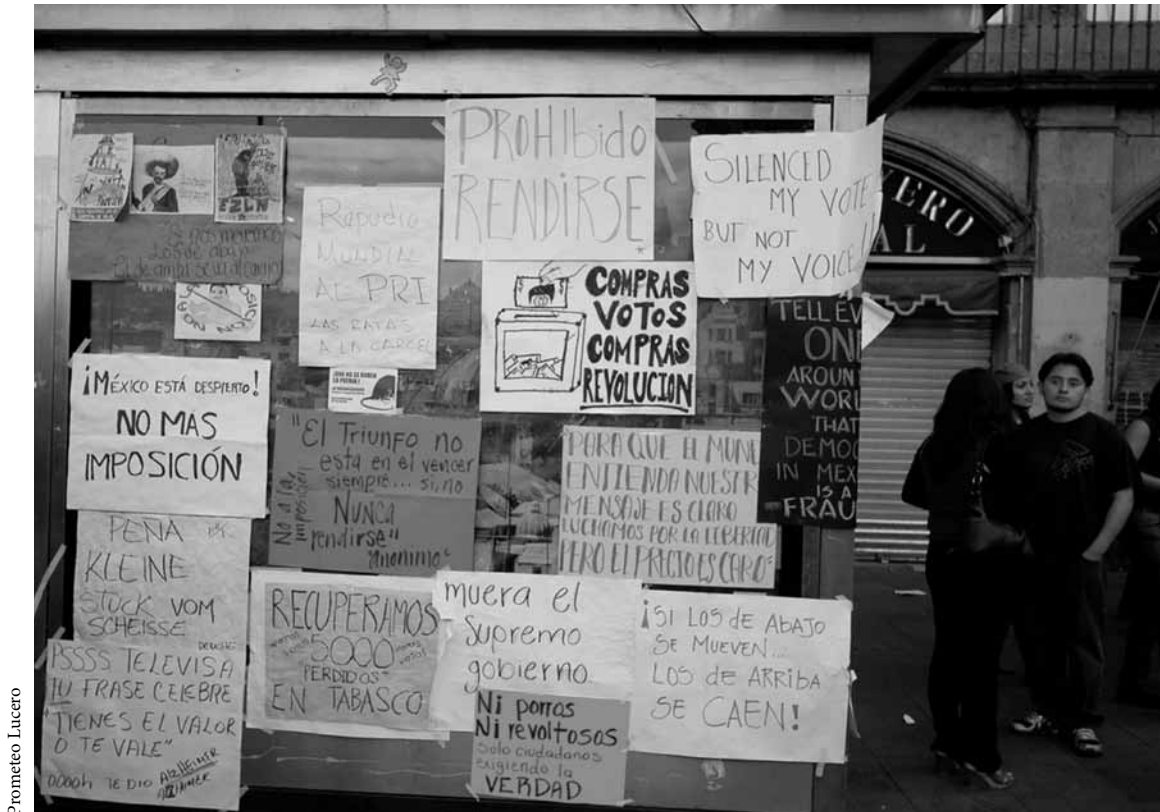 Prometeo Lucero
EZLN
Si nos movemos
Los de abajo
El de arriba se va al carajo
IMPOSICIÓN
Repudio
MUNDIAL
AL PRI
LAS RATAS
A LA CARCEL
PROHIbido
RENDIRSE
SILENCED
MY VOTE
BUT NOT
MY VOICE
VERO
AL
COMPRAS
VOTOS
COMPRAS
REVOLUCION
TELL EV
ON
AROUN
WORL
THAT
DEMOC
IN MEX
IS A
FRAU
¡MÉXICO ESTÁ DESPIERTO!
NO MAS
IMPOSICIÓN
¡QUE NO SE ROBEN
LA PATRIA!
"El Triunfo no
esta en el vencer
siempre... si, no
Nunca
rendirse"
"anonimo"
No a la
imposición
"PARA QUE EL MUN
ENTIENDA NUESTR
MENSAJE ES CLARO
LUCHAMOS POR LA LIBERTAD
PERO EL PRECIO ES CARO"
PEÑA
KLEINE
STUCK VOM
SCHEISSE
PSSSS TELEVISA
TU FRASE CELEBRE
"TIENES EL VALOR
O TE VALE"
OOOOh TE DIO ALZHEIMER
RECUPERAMOS
5000
"PERDIDOS"
EN TABASCO
muera el
supremo
gobierno
Ni porros
Ni revoltosos
Solo ciudadanos
exigiendo la
VERDAD
¡SI LOS de ABAJO
SE MUEVEN...
LOS de ARRIBA
SE CAEN!